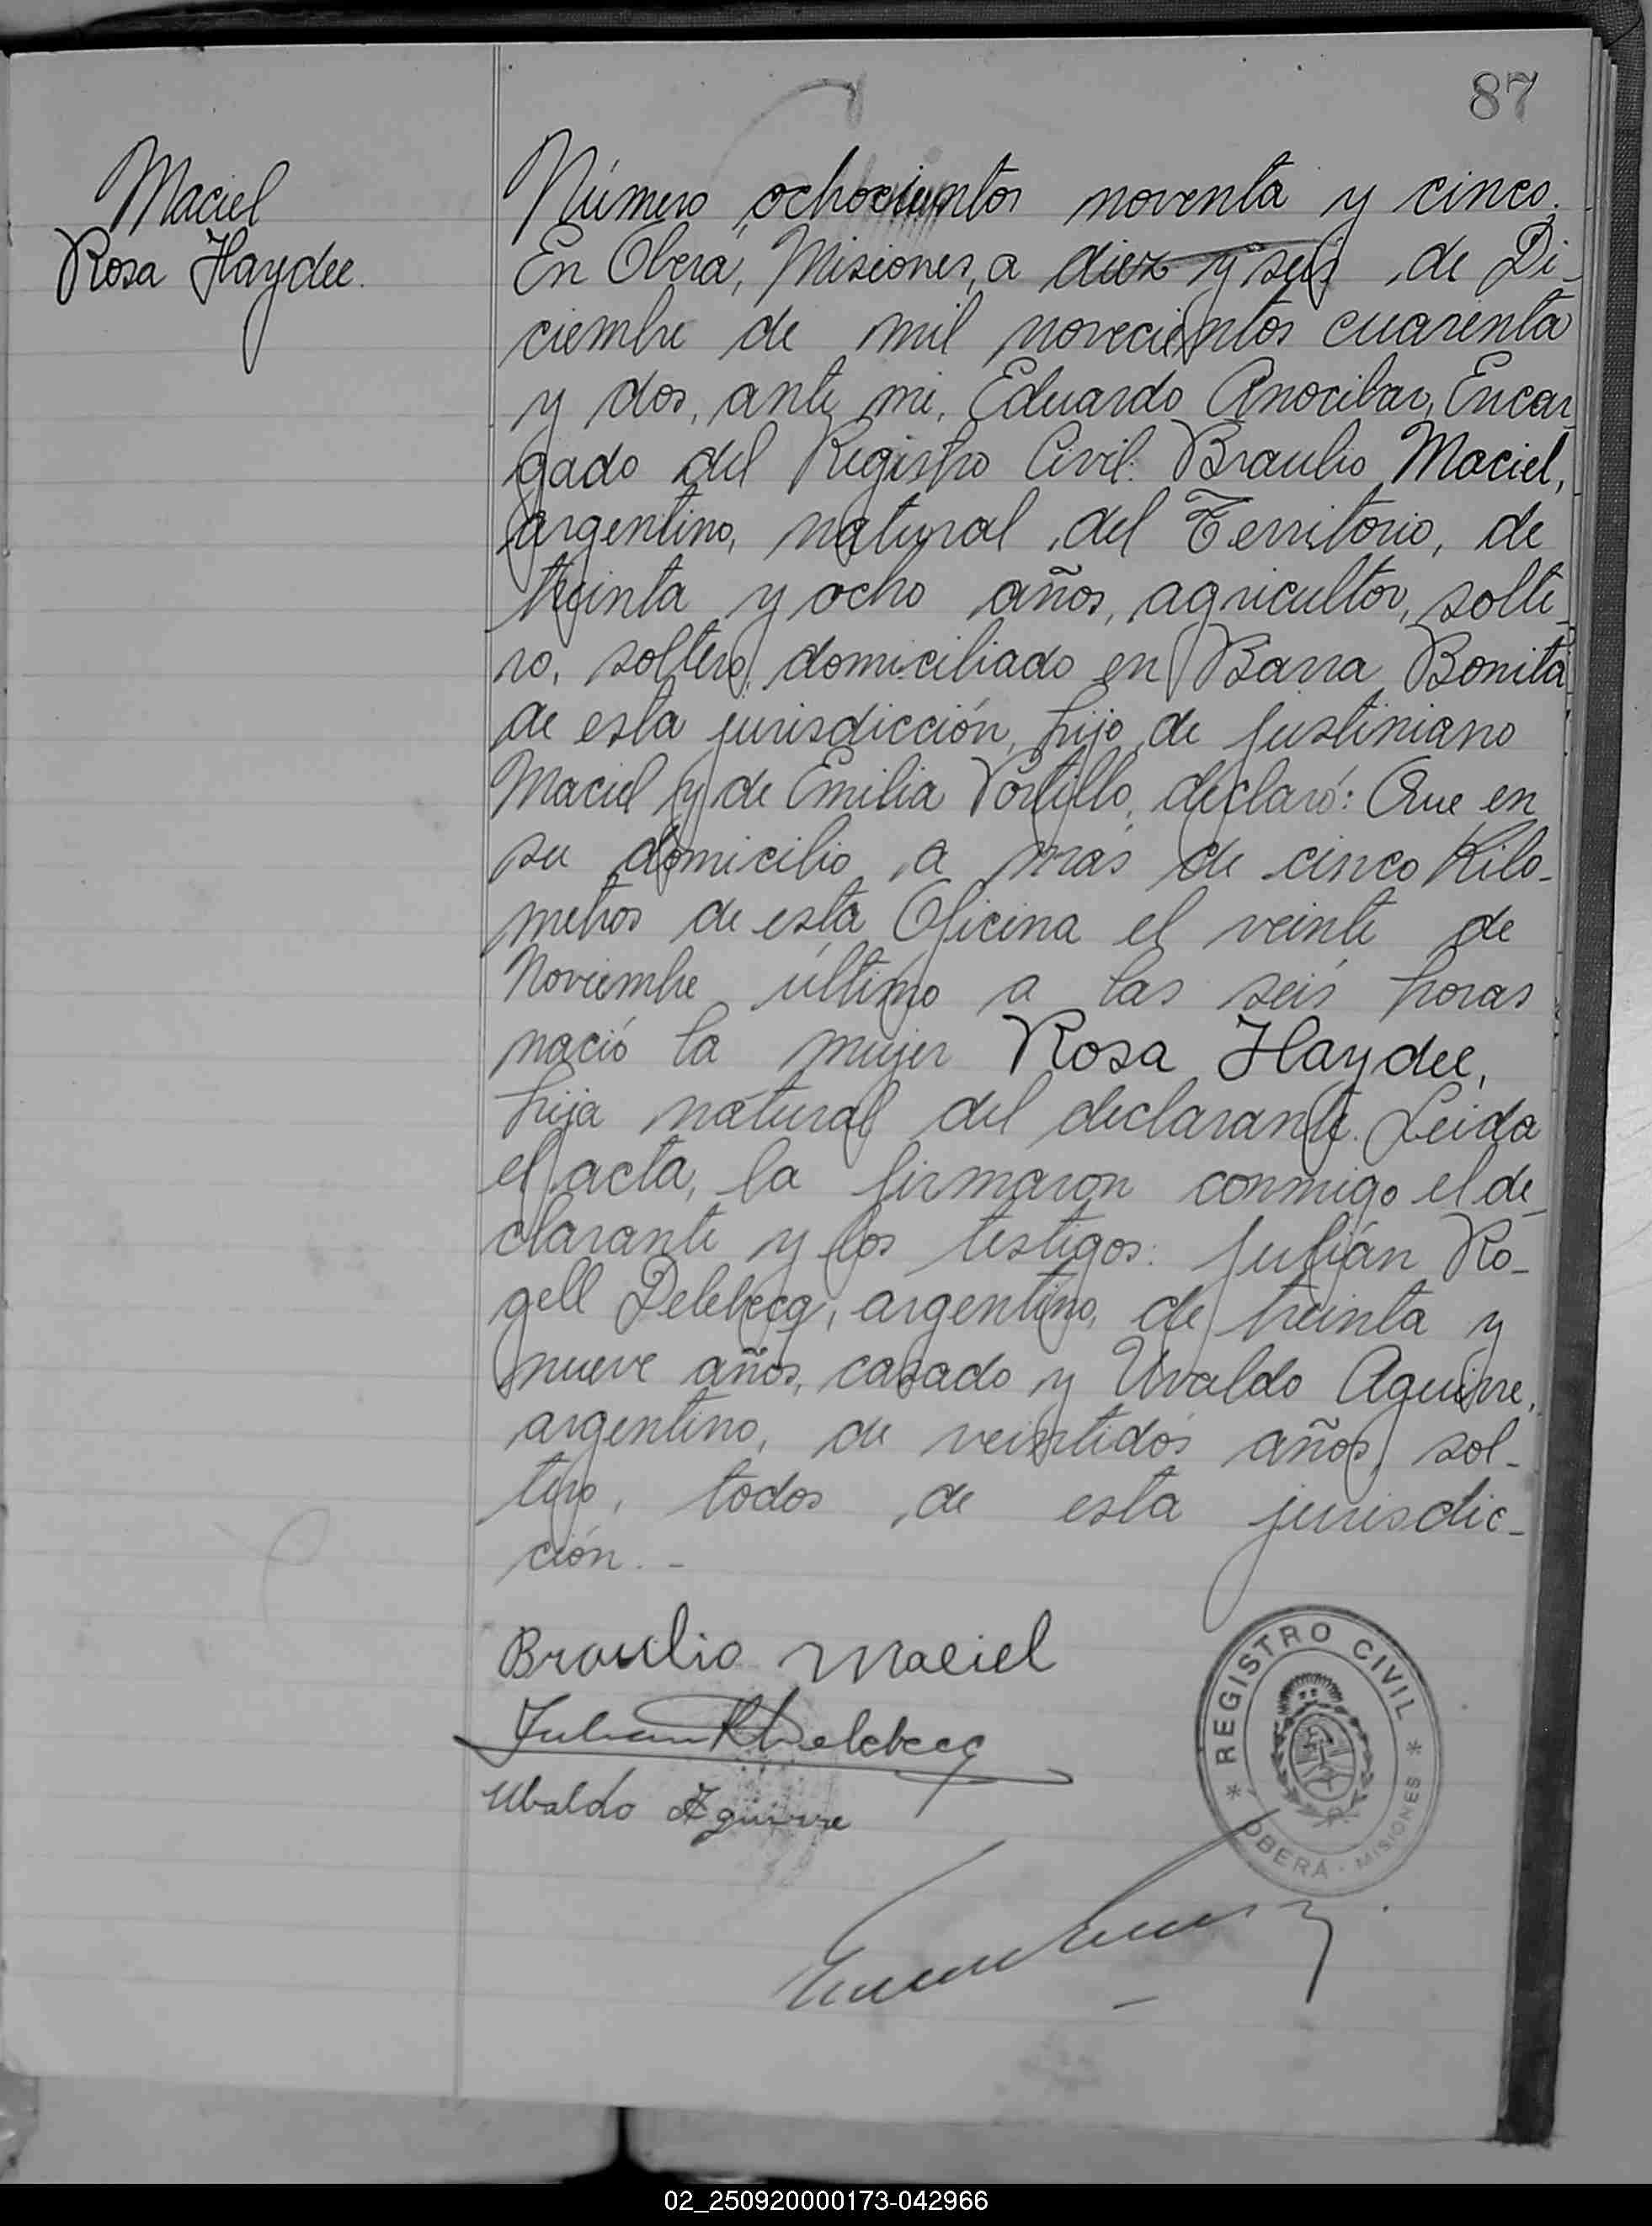 87
Maciel
Rosa Haydee.
Número ochocientos noventa y cinco.
En Oberá, Misiones, a diez y seis de Di-
ciembre de mil novecientos cuarenta
y dos, ante mi, Eduardo Anocibar, Encar-
gado del Registro Civil: Braulio Maciel,
argentino, natural del Territorio, de
treinta y ocho años, agricultor, solte-
ro, soltero, domiciliado en Barra Bonita
de esta jurisdicción, hijo de Justiniano
Maciel y de Emilia Portillo, declaró: Que en
su domicilio a más de cinco Kilo-
metros de esta Oficina el veinte de
Noviembre último a las seis horas
nació la mujer Rosa Haydee,
hija natural del declarante. Leida
el acta, la firmaron conmigo el de-
clarante y los testigos: Julián Ro-
gell Delebecq, argentino, de treinta y
nueve años, casado y Uvaldo Aguirre,
argentino, de veintidós años, sol-
tero, todos de esta jurisdic-
ción.-
Braulio Maciel
Julian R Delebecq
Ubaldo Aguirre
* REGISTRO CIVIL *
OBERÁ - MISIONES
02_250920000173-042966